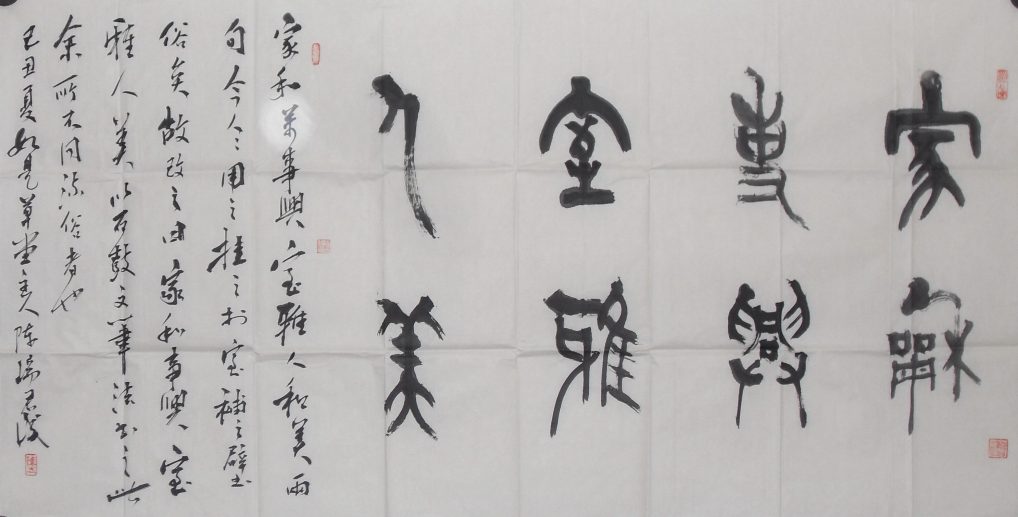 家龢
事興
室雅
人美
家和万事興室雅人和美两
句今人人用之挂之於室補之壁出
俗矣故改之曰家和事興室
雅人美以石鼓文筆法書之此
余所不同流俗者也
己丑夏如是草堂主人陈瑞